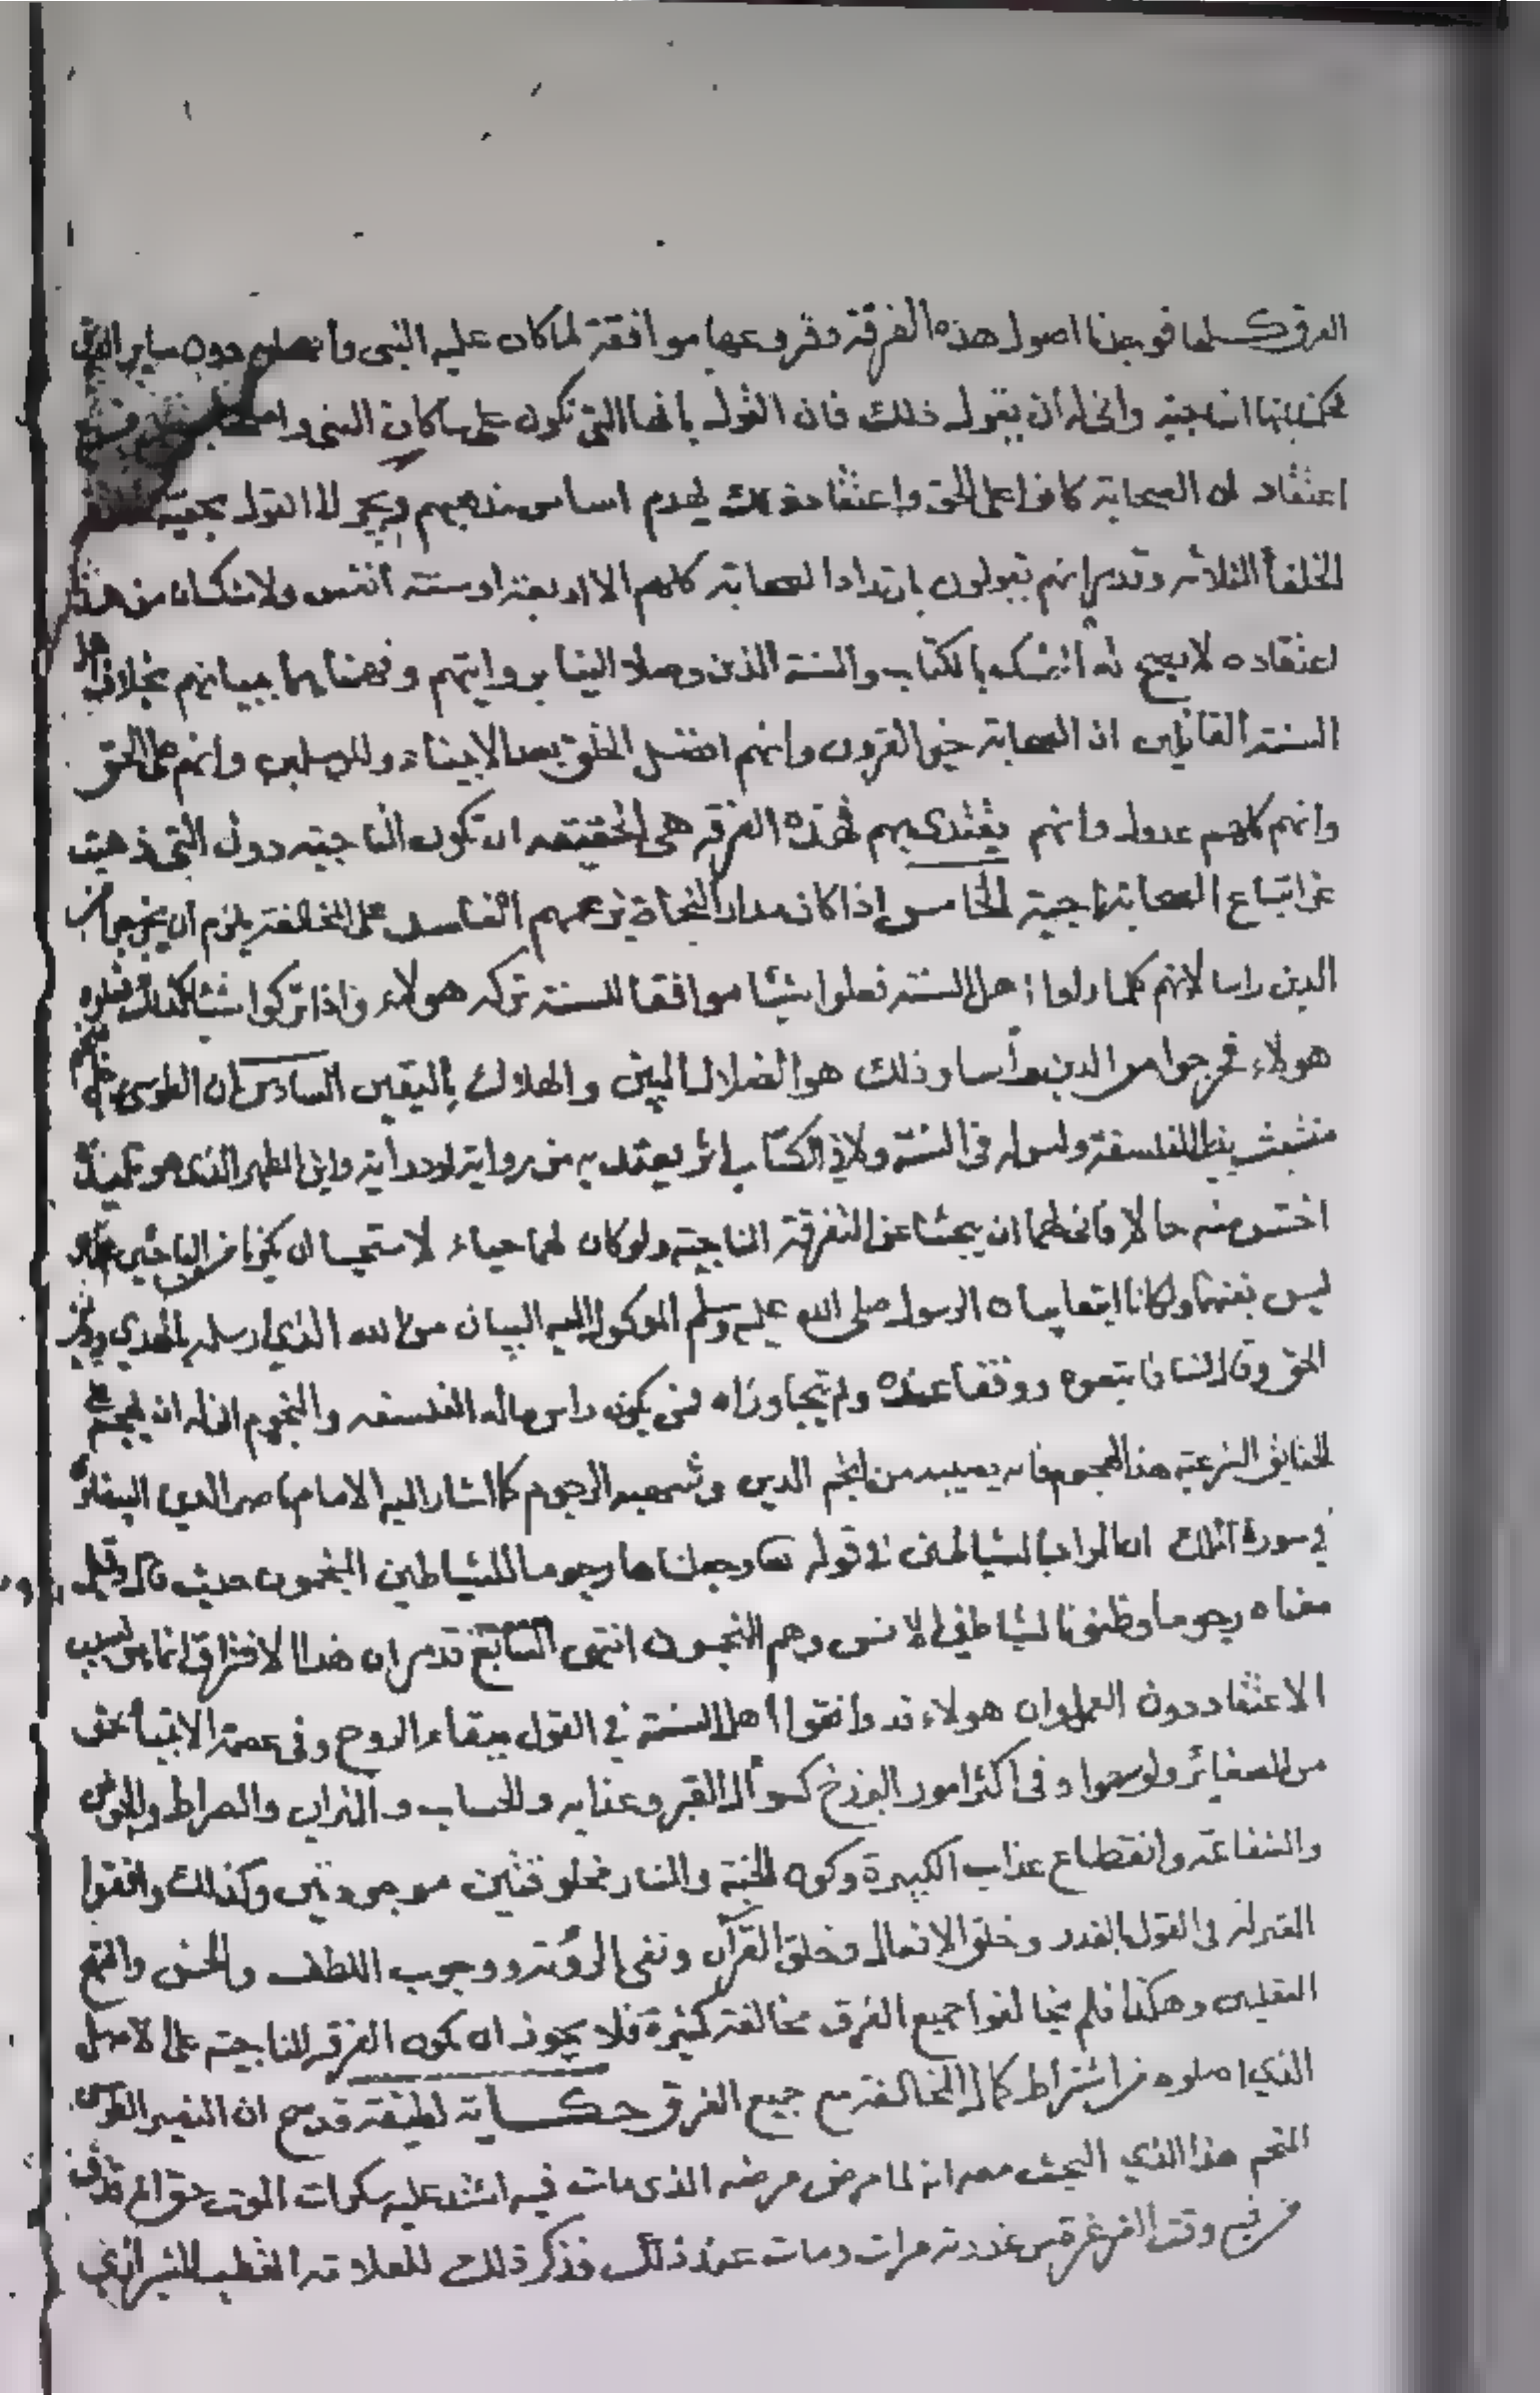 الفرق كلها فوجدنا اصول هذه الفرقة وفروعها موافقة لما كان عليه النبي وأصحابه دون ساير الفرق
فحكمنا بانها الناجية وانى له أن يقول ذلك فان القول بانها التي تكون على ما كان النبي واصحابه
اعتقاد ان الصحابة كانوا على الحق واعتقاد ذلك يهدم اساس مذهبهم ويجر الى القول بحقية
الخلفأ الثلاثة وقد مر انهم يقولون بارتداد الصحابة كلهم الا اربعة اوستة أنفس ولاشك ان من هذا
اعتقاده لايصح له التمسك بالكتاب والسنة الذين وصلا الينا بروايتهم وفهمناهما ببيانهم بخلاف اهل
السنة القائلين ان الصحابة خير القرون وانهم افضل الخلق بعد الانبياء والمرسلين وانهم على الحق
وانهم كلهم عدول وانهم يقتدى بهم فهذه الفرقة هي الحقيقه ان تكون الناجية دون التي ذهبت
عن اتباع الصحابة ناجية الخامس اذا كان مدار النجاة بزعمهم الفاسد على المخالفة يلزم أن يخرجوا من
الدين راسا لانهم كلما راوا اهل السنة فعلوا شيئا موافقا للسنة تركه هولاء واذا تركوا شيئا كذلك فعله
هولاء فخرجوا من الدين رأسا وذلك هو الضلال المبين والهلاك باليقين السادس ان الطوسي
متشبث بذيل الفلسفة وليس له في السنة ولا في الكتاب اثر يعتمد به من رواية او دراية وابن المطهر الذي هو تلميذه
اخس منه حالا فانى لهما ان يبحثا عن الفرقة الناجية ولو كان لهما حياء لاستحيا ان يكونا من الباحثين
ليس بفنهما ولكانا اتبعا بيان الرسول صلى الله عليه وسلم الموكول اليه البيان من الله الذي ارسله بالهدى ودين
الحق وقال لنا فاتبعوه ووقفا عنده ولم يتجاوزاه فمن يكون راس ماله الفلسفه والنجوم انى له ان يهجم على
الحقايق الشرعية هذا الهجوم فانه يصيبه من انجم الدين وشهبه الرجوم كما اشار اليه الامام ناصر الدين البيضاوي
في سورة الملك ان المراد بالشياطين في قوله تعا وجعلناها رجوما للشياطين المنجمون حيث قال وقيل
معناه رجوما وظنونا لشياطين الانس وهم المنجمون انتهى السابع قد مر ان هذا الافتراق انما هو بسبب
الاعتقاد دون العمل وان هولاء قد وافقوا أهل السنة في القول ببقاء الروح وفي عصمة الانبيأ حتى
من الصغائر ولو سهوا وفي اكثر امور البرزخ كسوأل القبر وعذابه والحساب والميزان والصراط والحوض
والشفاعة وانقطاع عذاب الكبيرة وكون الجنة والنار مخلوقتين موجودتين وكذلك وافقوا
المعتزلة في القول بالقدر وخلق الافعال وخلق القرآن ونفي الرؤية ووجوب اللطف والحسن والقبح
العقليين وهكذا فلم يخالفوا جميع الفرق مخالفة كثيرة فلا يجوز ان تكون الفرقة الناجية على الاصل
الذي اصلوه من اشتراط كمال المخالفة مع جميع الفرق حكاية لطيفة قد صح ان النصير الطوسي
المنجم هذا الذي البحث معه انه لما مرض مرضه الذي مات فيه اشتد عليه سكرات الموت حتى
من فيه وقت الغرغرة من غدرته مرات ومات عند ذلك فذكر ذلك للعلامة القطب الشيرازي